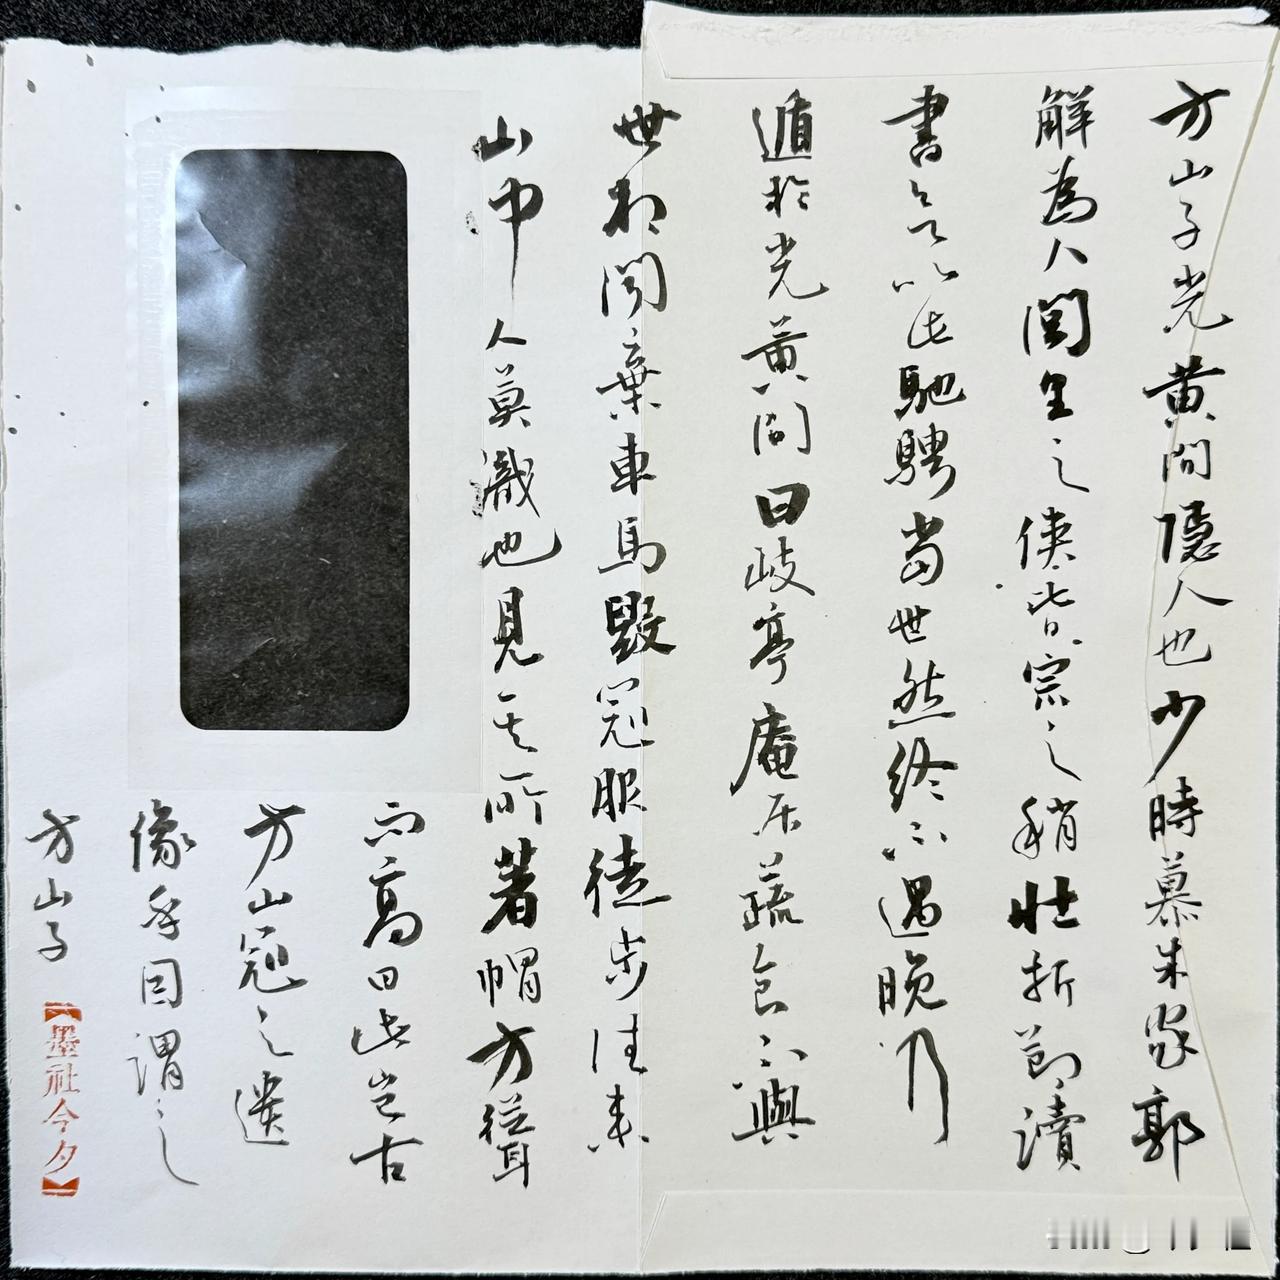 方山子光黄間隱人也少時慕朱家郭
解為人閭里之俠皆宗之稍壯折節讀
書欲以此馳騁當世然終不遇晚乃
遁於光黄間曰岐亭庵居蔬食不與
世相聞棄車馬毀冠服徒步往來
山中人莫識也見其所著帽方聳
而高曰此豈古
方山冠之遺
像乎因謂之
方山子
【墨社今夕】